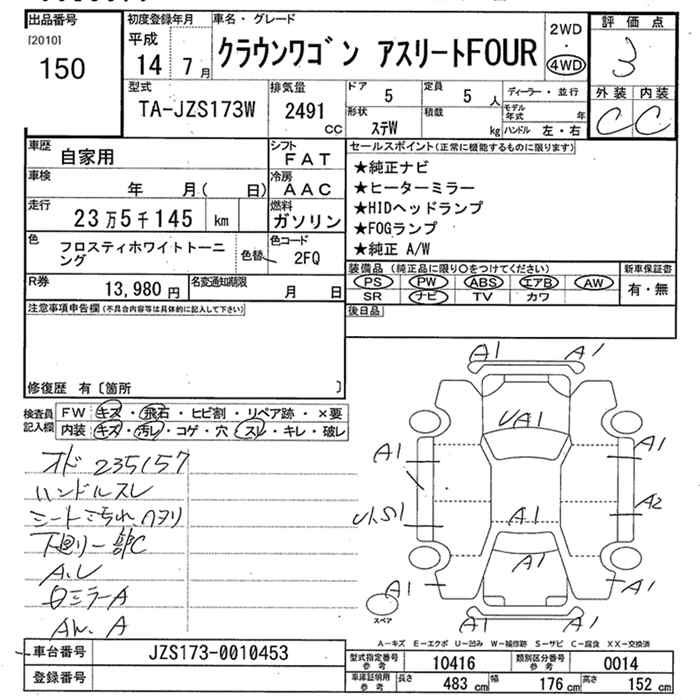 出品番号 初度登録年月 車名・グレード 評価点
[2010] 平成 2WD
150 14 7月 クラウンワゴン アスリートFOUR ・ 3
4WD
型式 排気量 ドア 定員 ディーラー・並行 外装 内装
TA-JZS173W 2491 cc 5 5 人 モデル年式 年 C C
形状 積載
ステW kg ハンドル 左・右
車歴 自家用 シフト FAT セールスポイント(正常に機能するものに限ります)
車検 年 月( 日) 冷房 AAC ★純正ナビ
★ヒーターミラー
走行 23万5千145 km 燃料 ガソリン ★HIDヘッドランプ
★FOGランプ
色 フロスティホワイトトーニング 色替 色コード 2FQ ★純正 A/W
R券 13,980 円 名変通知期限 月 日
装備品(純正品に限り○をつけてください) 新車保証書
PS PW ABS エアB AW 有・無
SR ナビ TV カワ
注意事項申告欄(不具合内容等は具体的に記入して下さい) 後日品
修復歴 有〔箇所 〕
検査員記入欄 FW キズ・飛石・ヒビ割・リペア跡・×要
内装 キズ・汚レ・コゲ・穴・スレ・キレ・破レ
オド 235157
ハンドルスレ
シート汚れ、ヘタリ
下廻り一部C
A.U
ロミラーA
A A
A1 A1
UA1
A1 A1
A2
A1
A1 A1 A1
スペア
A-キズ E-エクボ U-凹み W-補修跡 S-サビ C-腐食 XX-交換済
車台番号 JZS173-0010453
型式指定番号 参考 10416 類別区分番号 参考 0014
登録番号
車庫証明用 参考 長さ 483 cm 幅 176 cm 高さ 152 cm